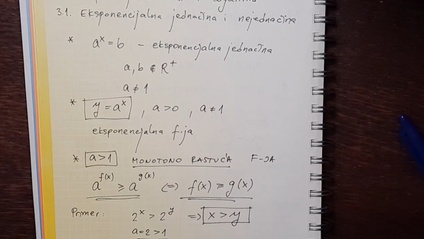 3.1. Eksponencijalna jednačina i nejednačina
* aˣ = b – eksponencijalna jednačina
a, b ∈ R⁺
a ≠ 1
* y = aˣ , a > 0 , a ≠ 1
eksponencijalna f-ja
* a>1 MONOTONO RASTUĆA F-JA
a^f(x) ≥ a^g(x) (=) f(x) ≥ g(x)
Primer: 2ˣ > 2ʸ => x > y
a=2>1